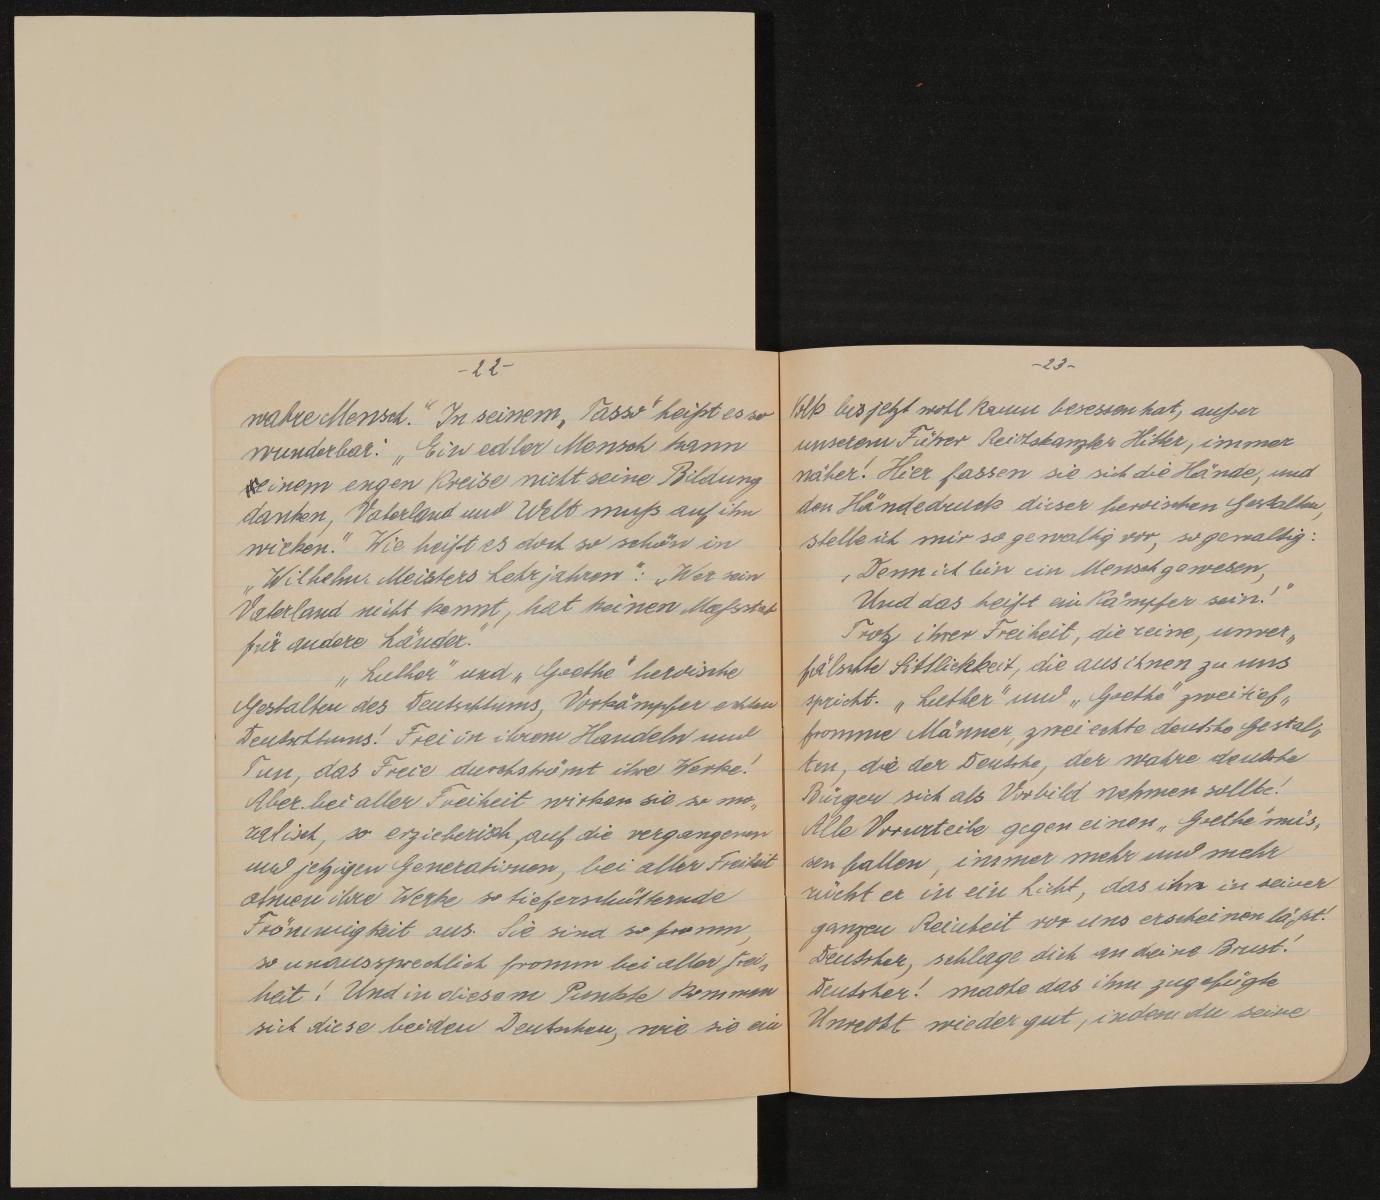 -22-
wahre Mensch." In seinem „Tasso" heißt es so
wunderbar: „Ein edler Mensch kann
einem engen Kreise nicht seine Bildung
danken, Vaterland und Welt muß auf ihn
wirken." Wie heißt es doch so schön in
„Wilhelm Meisters Lehrjahren": „Wer sein
Vaterland nicht kennt, hat keinen Maßstab
für andere Länder."
„Luther" und „Goethe" heroische
Gestalten des Deutschtums, Vorkämpfer echten
Deutschtums! Frei in ihrem Handeln und
Tun, das Freie durchströmt ihre Werke!
Aber bei aller Freiheit wirken sie so mo„
ralisch, so erzieherisch, auf die vergangenen
und jetzigen Generationen, bei aller Freiheit
atmen ihre Werke so tieferschütternde
Frömmigkeit aus. Sie sind so fromm,
so unaussprechlich fromm bei aller Frei„
heit! Und in diesem Punkte kommen
sich diese beiden Deutschen, wie sie ein
-23-
Volk bis jetzt wohl kaum besessen hat, außer
unserem Führer Reichskanzler Hitler, immer
näher! Hier fassen sie sich die Hände, und
den Händedruck dieser heroischen Gestalten,
stelle ich mir so gewaltig vor, so gewaltig:
„Denn ich bin ein Mensch gewesen,
Und das heißt ein Kämpfer sein!"
Trotz ihrer Freiheit, die reine, unver„
fälschte Sittlichkeit, die aus ihnen zu uns
spricht. „Luther" und „Goethe" zwei tief„
fromme Männer, zwei echte deutsche Gestal„
ten, die der Deutsche, der wahre deutsche
Bürger sich als Vorbild nehmen sollte!
Alle Vorurteile gegen einen „Goethe" müs„
sen fallen, immer mehr und mehr
rückt er in ein Licht, das ihn in seiner
ganzen Reinheit vor uns erscheinen läßt!
Deutscher, schlage dich an deine Brust!
Deutscher! mache das ihm zugefügte
Unrecht wieder gut, indem du seine